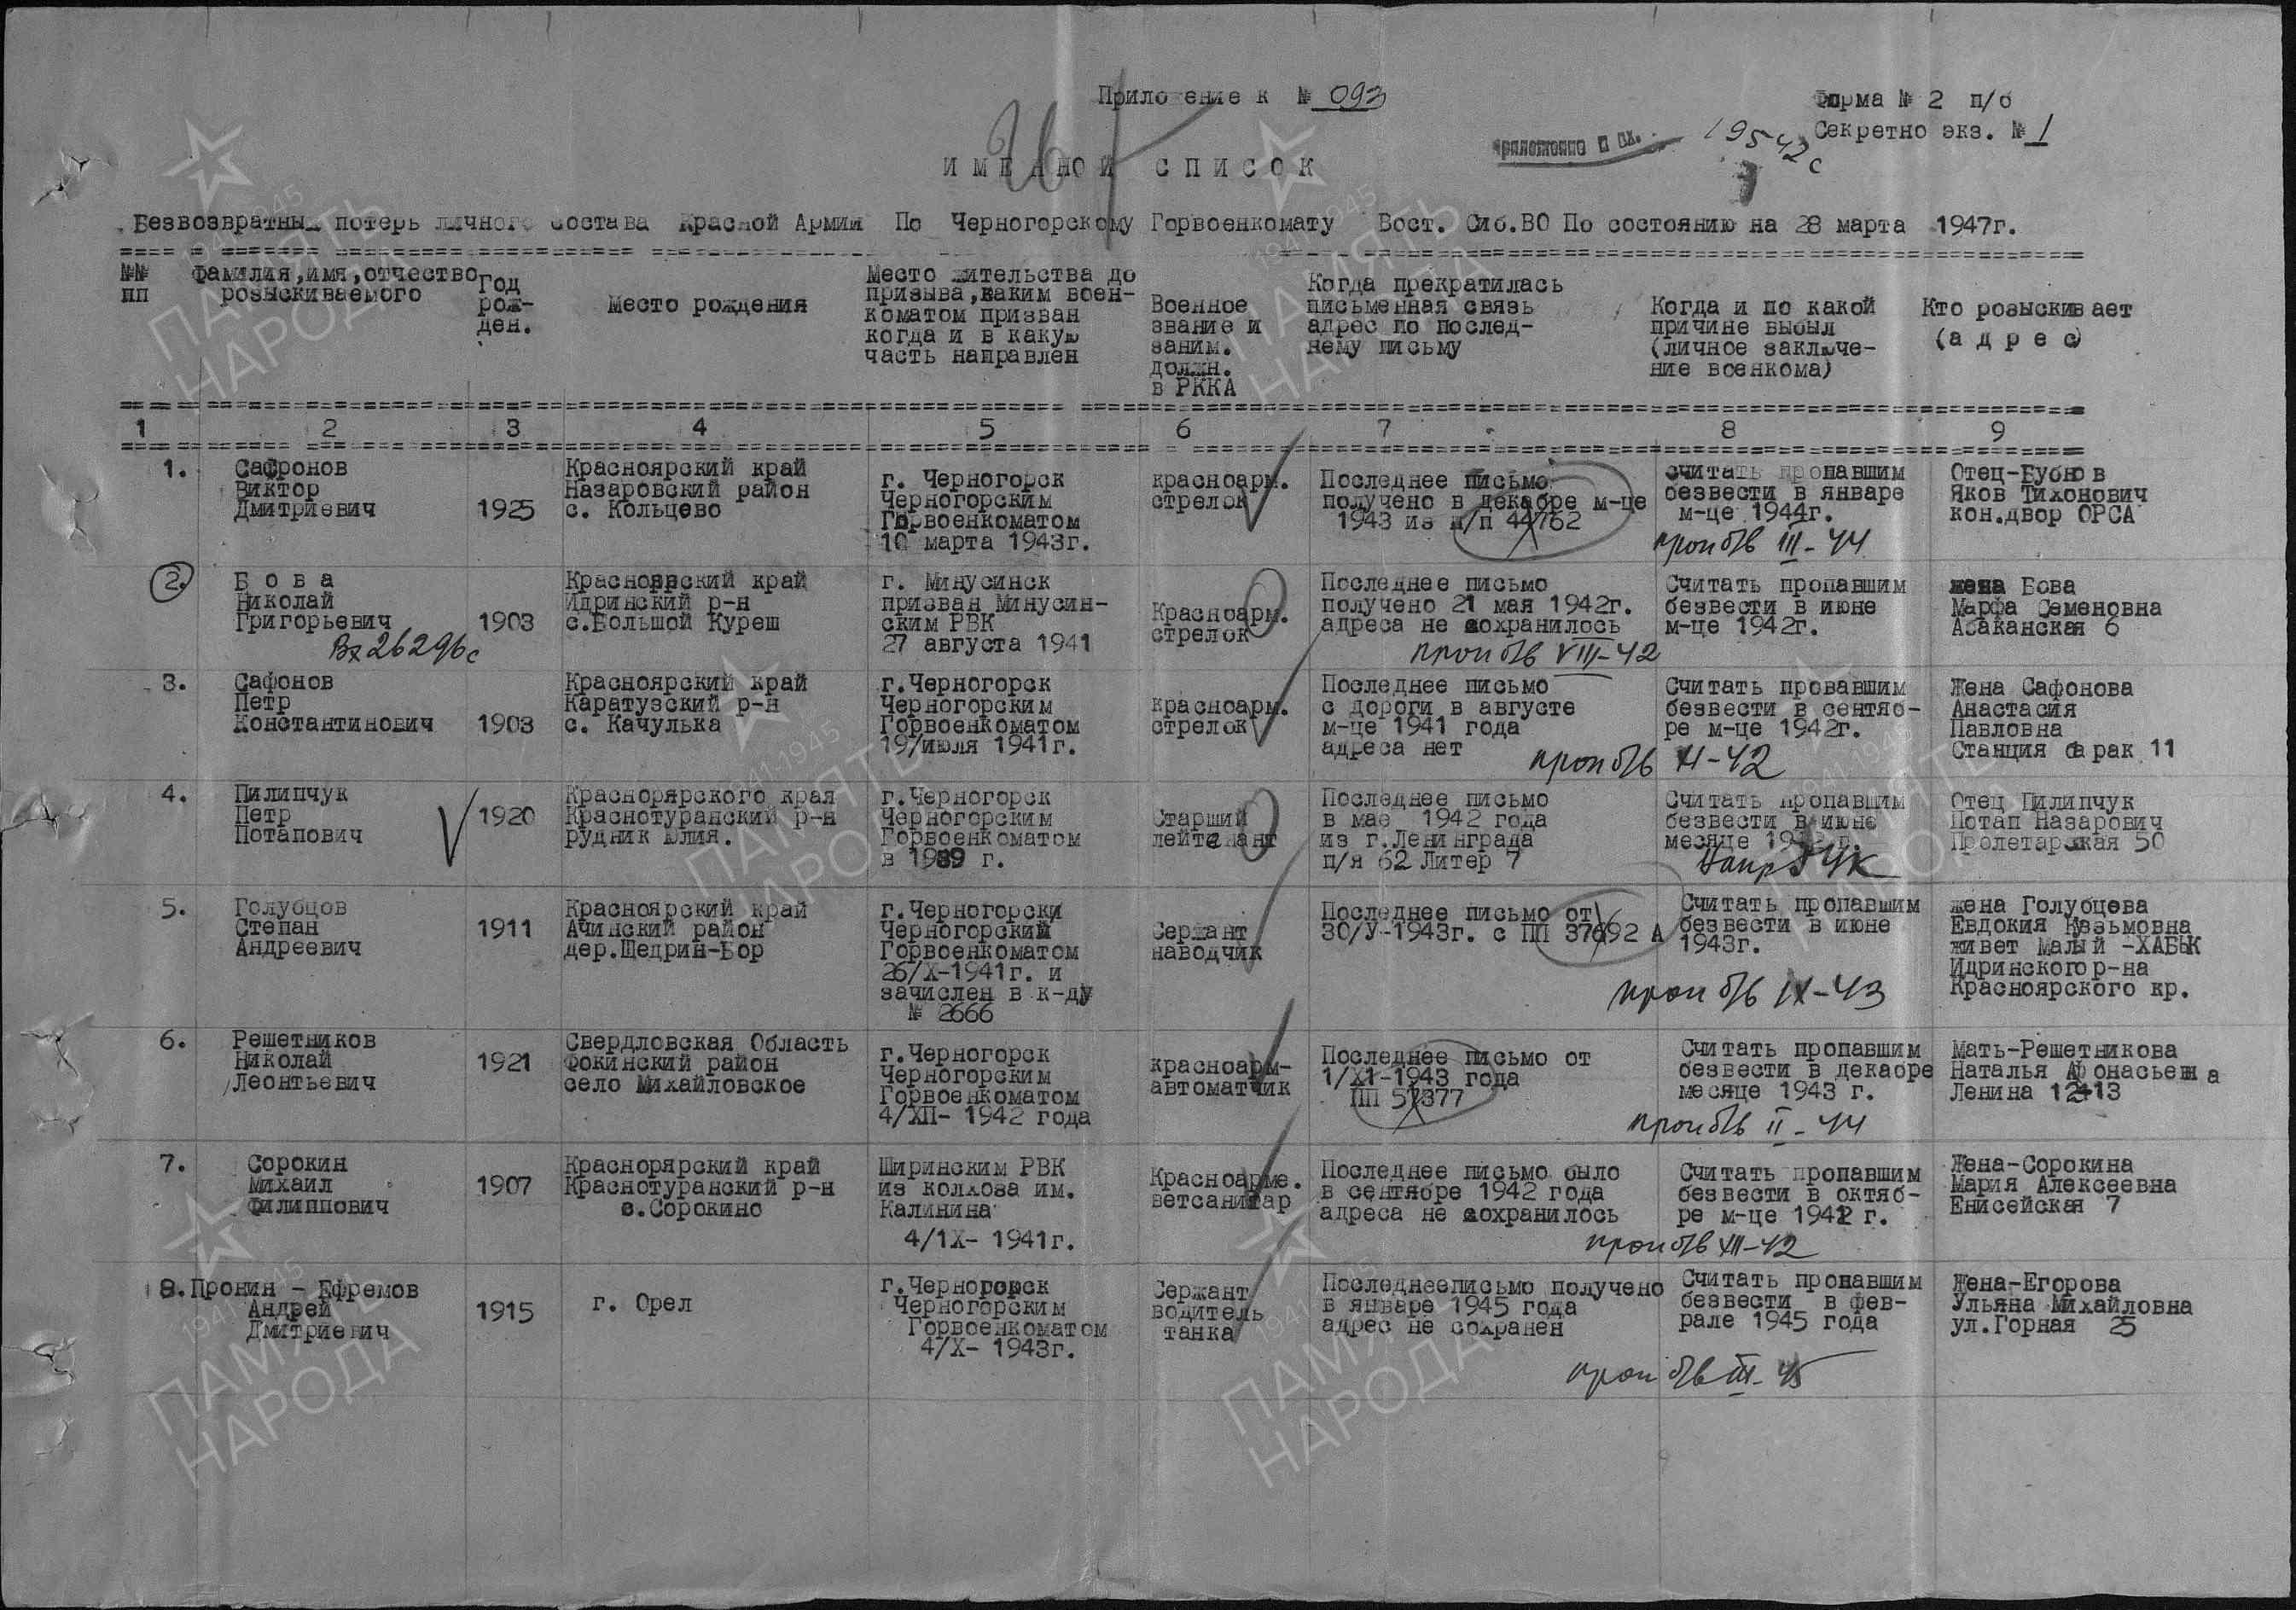 Приложение к № 093
Форма № 2 п/б
Секретно экз. № 1
19542с
ИМЕННОЙ СПИСОК
Безвозвратных потерь личного состава Красной Армии По Черногорскому Горвоенкомату Вост. Сиб.ВО По состоянию на 28 марта 1947г.
№№
пп
Фамилия,имя,отчество
розыскиваемого
Год
рож-
ден.
Место рождения
Место жительства до
призыва,каким воен-
коматом призван
когда и в какую
часть направлен
Военное
звание и
заним.
должн.
в РККА
Когда прекратилась
письменная связь
адрес по послед-
нему письму
Когда и по какой
причине выбыл
(личное заключе-
ние военкома)
Кто розыскивает
(адрес)
1 2 3 4 5 6 7 8 9
1.
Сафронов
Виктор
Дмитриевич
1925
Красноярский край
Назаровский район
с. Кольцево
г. Черногорск
Черногорским
Горвоенкоматом
10 марта 1943г.
красноарм.
стрелок
Последнее письмо
получено в декабре м-це
1943 из п/п 44762
считать пропавшим
безвести в январе
м-це 1944г.
проп б/в III-44
Отец-Бубнов
Яков Тихонович
кон.двор ОРСА
2.
Бова
Николай
Григорьевич
Вх 26296с
1903
Красноярский край
Идринский р-н
с.Большой Куреш
г. Минусинск
призван Минусин-
ским РВК
27 августа 1941
Красноарм.
стрелок
Последнее письмо
получено 21 мая 1942г.
адреса не сохранилось
проп б/в VIII-42
Считать пропавшим
безвести в июне
м-це 1942г.
жена Бова
Марфа Семеновна
Абаканская 6
3.
Сафонов
Петр
Константинович
1903
Красноярский край
Каратузский р-н
с. Качулька
г.Черногорск
Черногорским
Горвоенкоматом
19/июля 1941г.
красноарм.
стрелок
Последнее письмо
с дороги в августе
м-це 1941 года
адреса нет
проп б/в XI-42
Считать провавшим
безвести в сентяб-
ре м-це 1942г.
Жена Сафонова
Анастасия
Павловна
Станция барак 11
4.
Пилипчук
Петр
Потапович
1920
Краснорярского края
Краснотуранский р-н
рудник Юлия.
г.Черногорск
Черногорским
Горвоенкоматом
в 1939 г.
Старший
лейтенант
Последнее письмо
в мае 1942 года
из г.Ленинграда
п/я 62 Литер 7
Считать пропавшим
безвести в июне
месяце 1942 г.
Отец Пилипчук
Потап Назарович
Пролетарская 50
5.
Голубцов
Степан
Андреевич
1911
Красноярский край
Ачинский район
дер.Щедрин-Бор
г.Черногорски
Черногорский
Горвоенкоматом
26/X-1941г. и
зачислен в к-ду
№ 2666
Сержант
наводчик
Последнее письмо от
30/У-1943г. с ПП 37692 А
Считать пропавшим
безвести в июне
1943г.
проп б/в IX-43
жена Голубцева
Евдокия Кузьмовна
живет Малый -ХАБЫК
Идринского р-на
Красноярского кр.
6.
Решетников
Николай
Леонтьевич
1921
Свердловская Область
Фокинский район
село Михайловское
г.Черногорск
Черногорским
Горвоенкоматом
4/XII- 1942 года
красноарм-
автоматчик
Последнее письмо от
1/XI-1943 года
ПП 57377
Считать пропавшим
безвести в декабре
месяце 1943 г.
проп б/в II-44
Мать-Решетникова
Наталья Афонасьевна
Ленина 12-13
7.
Сорокин
Михаил
Филиппович
1907
Краснорярский край
Краснотуранский р-н
с.Сорокино
Ширинским РВК
из колхоза им.
Калинина
4/1X- 1941г.
Красноарме.
ветсанитар
Последнее письмо было
в сентябре 1942 года
адреса не сохранилось
Считать пропавшим
безвести в октяб-
ре м-це 1942 г.
проп б/в XII-42
Жена-Сорокина
Мария Алексеевна
Енисейская 7
8.
Пронин - Ефремов
Андрей
Дмитриевич
1915
г. Орел
г.Черногорск
Черногорским
Горвоенкоматом
4/X- 1943г.
Сержант
водитель
танка
Последнееписьмо получено
в январе 1945 года
адрес не сохранен
Считать пропавшим
безвести в фев-
рале 1945 года
проп б/в III-45
Жена-Егорова
Ульяна Михайловна
ул.Горная 25
1941-1945
ПАМЯТЬ
НАРОДА